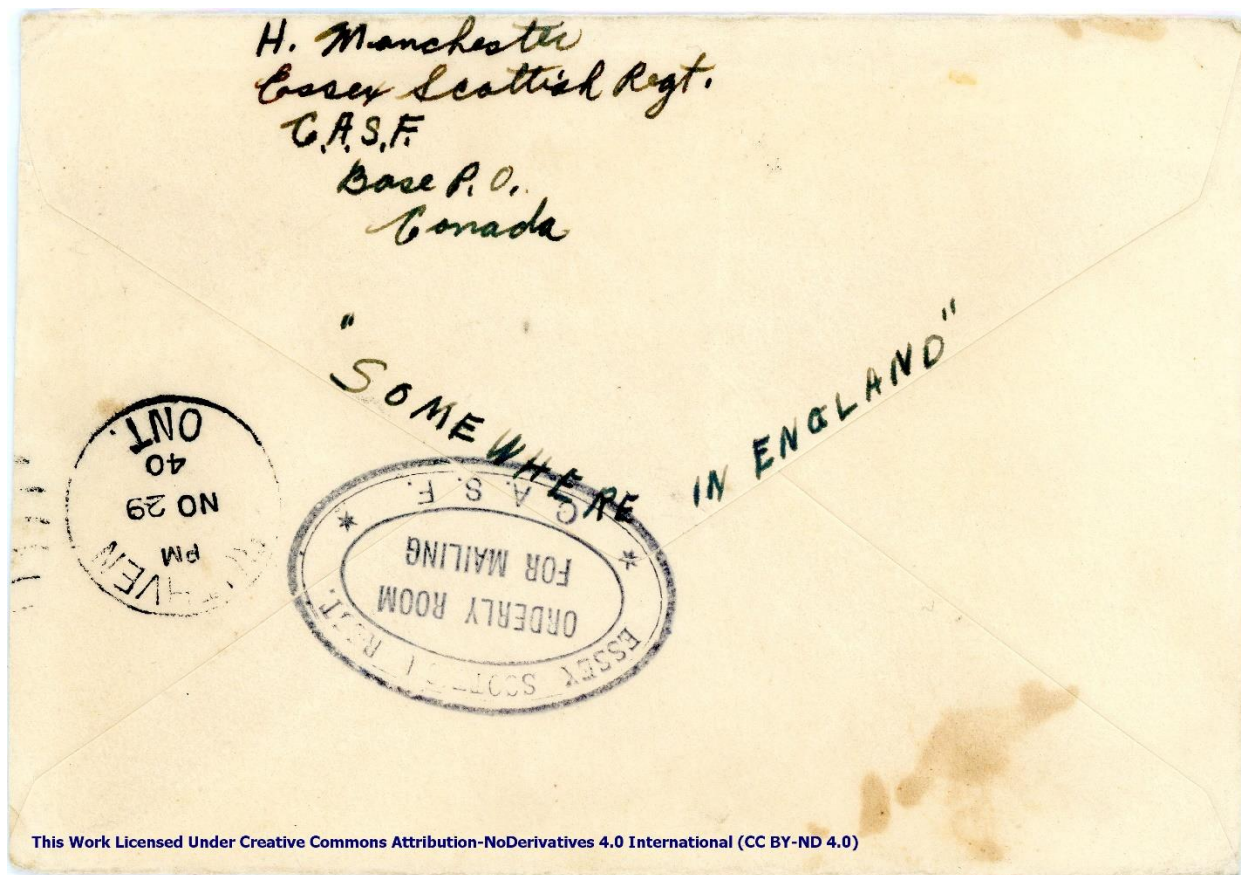 H. Manchester
Essex Scottish Regt.
C.A.S.F.
Base P.O.
Canada
"SOMEWHERE IN ENGLAND"
ONT.
40
NO 29
PM
C. A. S. F.
ORDERLY ROOM
FOR MAILING
ESSEX
This Work Licensed Under Creative Commons Attribution-NoDerivatives 4.0 International (CC BY-ND 4.0)